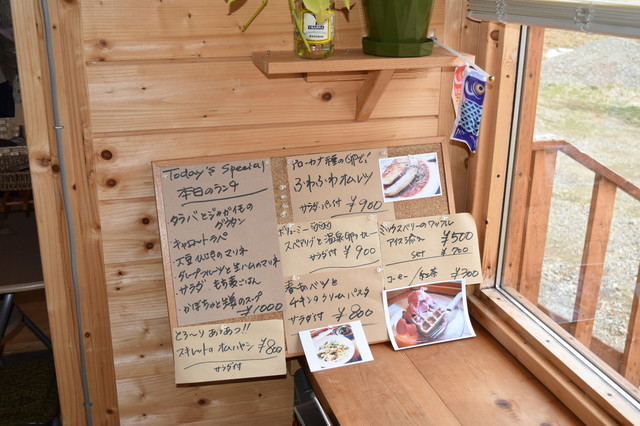 Today's Special
本日のランチ
タラバとじゃが芋の
グラタン
キャロットラペ
大豆
のマリネ
グレープフルーツと生ハムのマリネ
サラダ もち麦ごはん
かぼちゃと生姜のスープ
¥1000
とろ～り あつあつ!!
スキレットのオムハヤシ ¥800
サラダ付
アローカナ種の卵で!
ふわふわオムレツ
サラダ・パン付 ¥900
スペアリブと温泉卵のカレー
サラダ付 ¥900
春キャベツと
チキンのクリームパスタ
サラダ付 ¥800
ミックスベリーのワッフル
アイス添え ¥500
SET ¥700
コーヒー/紅茶 ¥300